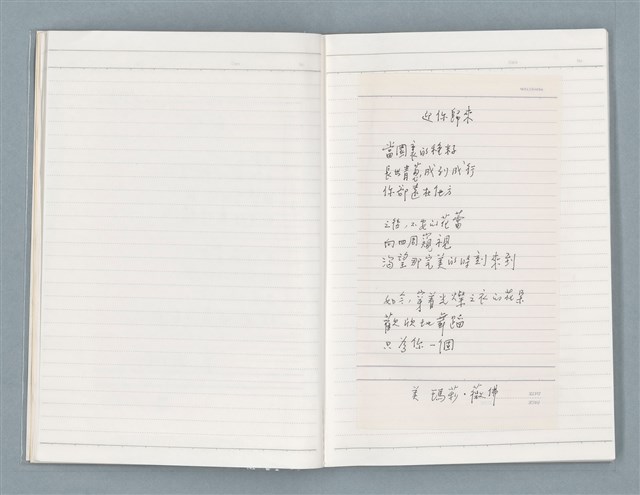 迎你歸來
當園裏的種籽
長出青蔥,成列成行
你卻還在他方
之後,不安的花蕾
向四周窺視
渴望那完美的時刻來到
如今,穿着光燦之衣的花朵
歡欣地舞蹈
只為你一個
美 瑪莉·薇佛